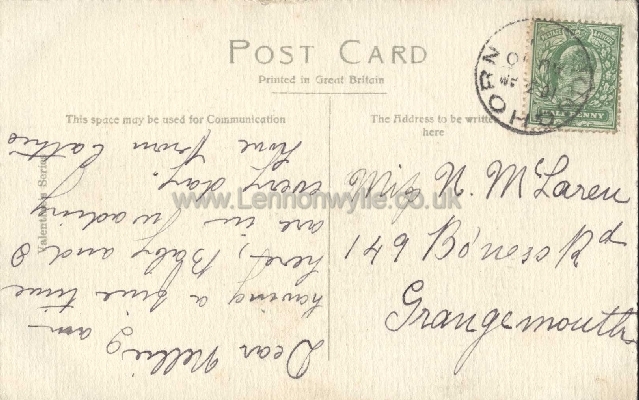 POST CARD
Printed in Great Britain
This space may be used for Communication
The Address to be written
here
Valentines Series
www.Lennonwylie.co.uk
Dear Nellie I am
having a fine time
here, Baby and I
are in wading
every day.
love from Cathie
Miss N. McLaren
149 Bo'ness Rd
Grangemouth